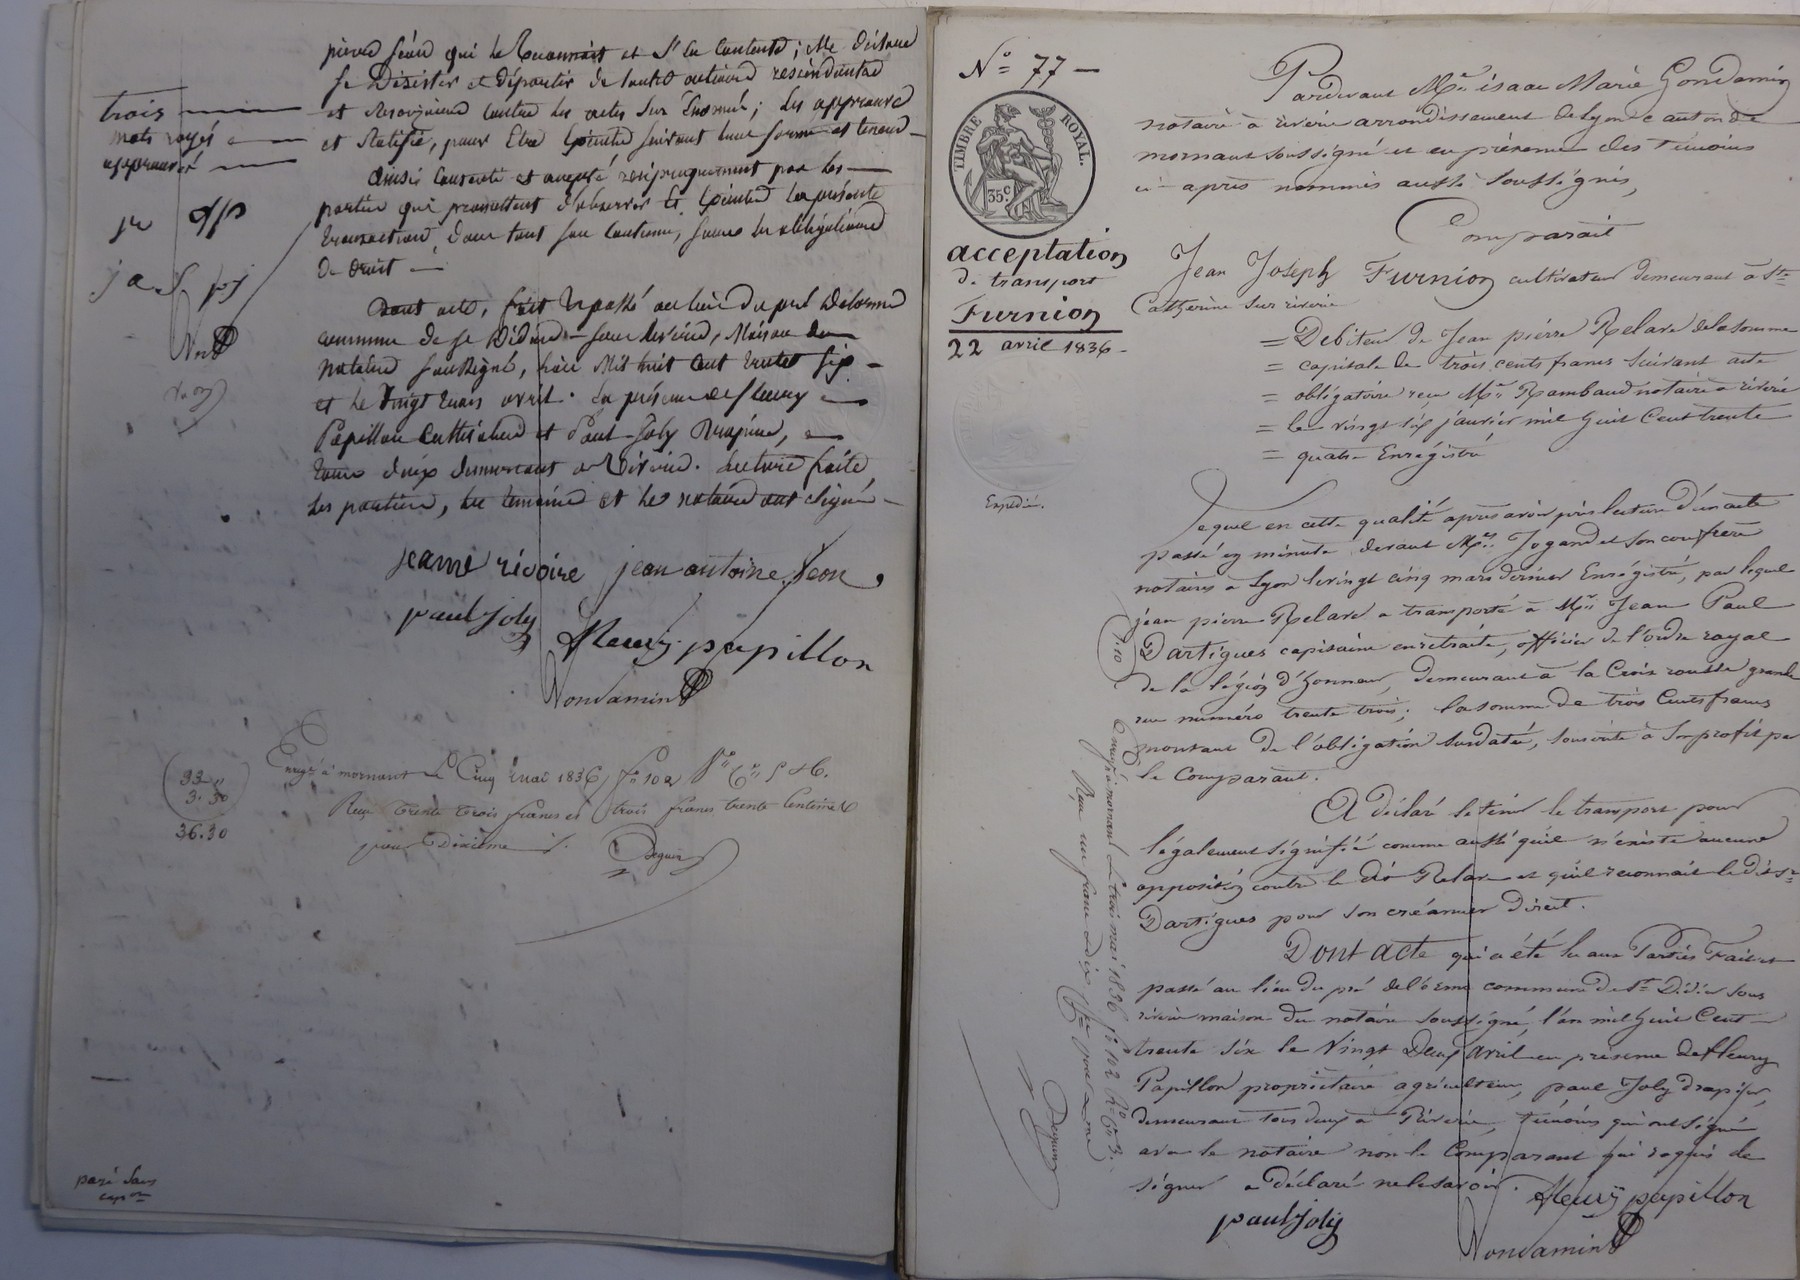 pierre féon qui le Reconnait et s'en Contente; elle déclare
se Désister et Départir de toutes actions rescindantes
et rescisoires contre les actes sus Enoncés; les approuve
et Ratifie, pour Etre Exécutés suivant leur forme et teneur
trois
mots rayés
approuvés
Ainsi Convenu et accepté réciproquement par les
parties qui promettent d'observer et Exécuter la présente
transaction, dans tout son Contenu, sous les obligations
De droit
jr
ja f pj
Dont acte, fait et passé au lieu du pré Delorme
commune de St Didier sous Riverie, Maison du
notaire soussigné, L'an Mil huit Cent trente Six
et le Vingt trois avril. En présence de fleury
Papillon Cultivateur et Paul Joly Drapier,
tous deux demeurant à Riverie. Lecture faite
les parties, les témoins et le notaire ont signé
jeanne rivoire jean antoine feon
paul Joly fleury papillon
Gondamin
33
3.30
36.30
Enregé à mornant Le Cinq mai 1836, fo 102
Reçu trente trois francs et trois francs trente Centimes
pour Dixième
Deguin
payé sans
No 77
TIMBRE ROYAL.
35c
acceptation
de transport
Furnion
22 avril 1836
Expédié.
Pardevant Me isaac Marie Gondamin
notaire à riverie arrondissement de Lyon canton de
mornant soussigné et en présence des témoins
ci-après nommés aussi soussignés,
Comparait
Jean Joseph Furnion cultivateur demeurant à Ste
Catherine sur riverie
= Débiteur de Jean pierre Relave de la somme
= capitale de trois cents francs suivant acte
= obligatoire reçu Me Rambaud notaire à riverie
= le vingt six janvier mil huit Cent trente
= quatre Enrégistré
Lequel en cette qualité après avoir pris lecture d'un acte
passé en minute devant Mes Jogand et son confrère
notaires à Lyon le vingt cinq mars dernier Enrégistré, par lequel
jean pierre Relave a transporté à Mr Jean Paul
Dartigues capitaine en retraite, officier de l'ordre royal
de la légion d'honneur, demeurant à la Croix rousse grande
rue numéro trente trois; la somme de trois Cents francs
montant de l'obligation susdatée, souscrite à son profit par
le Comparant.
A déclaré tenir le transport pour
légalement signifié comme aussi qu'il n'existe aucune
opposition contre le dit Relave et qu'il reconnait le dit Sr
Dartigues pour son créancier direct.
Dont acte qui a été lu aux Parties Fait et
passé au lieu du pré delorme commune de St Didier sous
riverie maison du notaire soussigné, l'an mil huit Cent
trente six le Vingt Deux avril en présence de fleury
Papillon propriétaire agriculteur, paul Joly drapier,
demeurant tous deux à Riverie, témoins qui ont signé
avec le notaire non le Comparant qui requis de
signer a déclaré ne le savoir.
fleury papillon
paul Joly
Gondamin
Enregé à mornant Le trois mai 1836 fo 102
Reçu un franc dix Cmes pour
Deguin